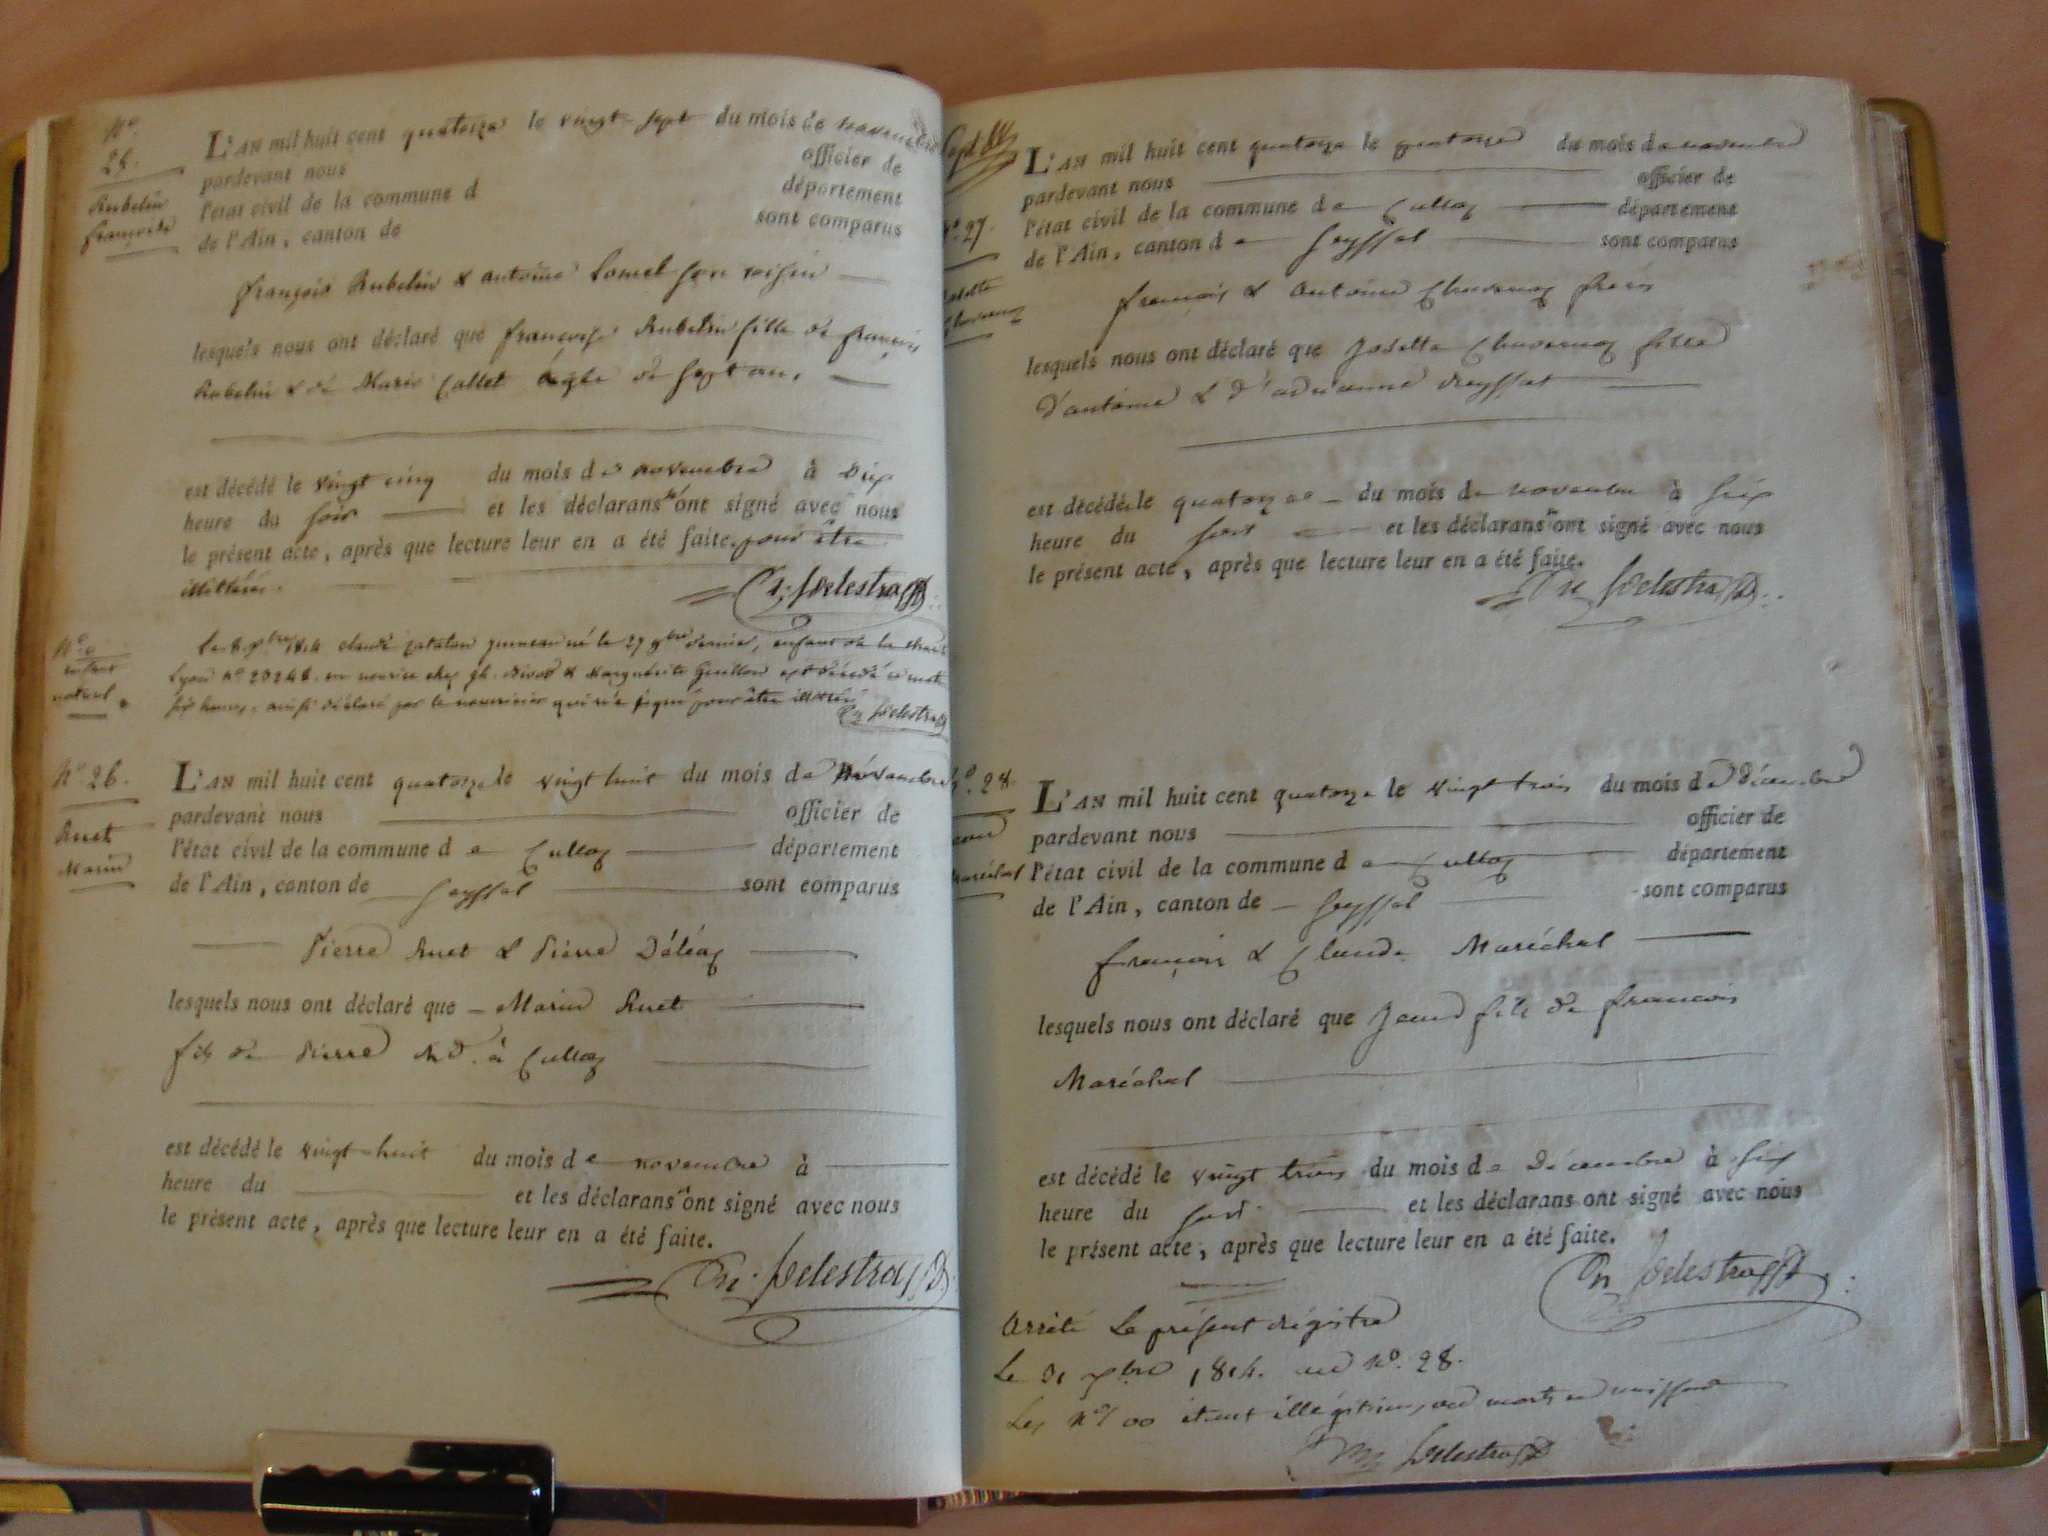 No
25.
Rubelin
françoise
L'AN mil huit cent quatorze le vingt sept du mois de novembre
pardevant nous officier de
l'état civil de la commune d département
de l'Ain, canton de sont comparus
françois Rubelin & antoine son voisin
lesquels nous ont déclaré que françoise Rubelin fille de françois
Rubelin & de Marie Callet âgée de sept ans.
est décédé le vingt cinq du mois de novembre à Dix
heure du soir et les déclarans n'ont signé avec nous
le présent acte, après que lecture leur en a été faite, pour être
illitérés.
Dn. Delestra
No 0
enfant
naturel.
Le 8 xbre 1814 claude catalan né le 27 9bre dernier, enfant de la
Lyon no 20248. en nourice chez jh. & Marguerite Guillon est décédé ce matin
six heures, ainsi déclaré par le nourricier qui n'a signé pour être illitéré
Dn Delestra
No 26.
Ruet
Marin
L'AN mil huit cent quatorze le vingt huit du mois de Novembre
pardevant nous officier de
l'état civil de la commune de Culloz département
de l'Ain, canton de Seyssel sont comparus
Pierre Ruet & Pierre Déléaz
lesquels nous ont déclaré que Marin Ruet
fils de Pierre à Culloz
est décédé le vingt-huit du mois de novembre à
heure du et les déclarans n'ont signé avec nous
le présent acte, après que lecture leur en a été faite.
Dn. Delestra
No. 27.
Josette
Chavanoz
L'AN mil huit cent quatorze le quatorze du mois de novembre
pardevant nous officier de
l'état civil de la commune de Culloz département
de l'Ain, canton de Seyssel sont comparus
françois & antoine Chavanoz frères
lesquels nous ont déclaré que Josette Chavanoz fille
d'antoine & d'adrianne
est décédé le quatorze du mois de novembre à six
heure du soir et les déclarans n'ont signé avec nous
le présent acte, après que lecture leur en a été faite.
Dn Delestra
No. 28.
Jean
Maréchal
L'AN mil huit cent quatorze le vingt trois du mois de Décembre
pardevant nous officier de
l'état civil de la commune de Culloz département
de l'Ain, canton de Seyssel sont comparus
françois & Claude Maréchal
lesquels nous ont déclaré que Jean fils de françois
Maréchal
est décédé le vingt trois du mois de Décembre à six
heure du soir et les déclarans ont signé avec nous
le présent acte, après que lecture leur en a été faite.
Dn Delestra
Arrêté le présent régistre
Le 31 xbre 1814. au No. 28.
Les Nos 00 étant illégitimes ou morts en naissant
Dn Delestra